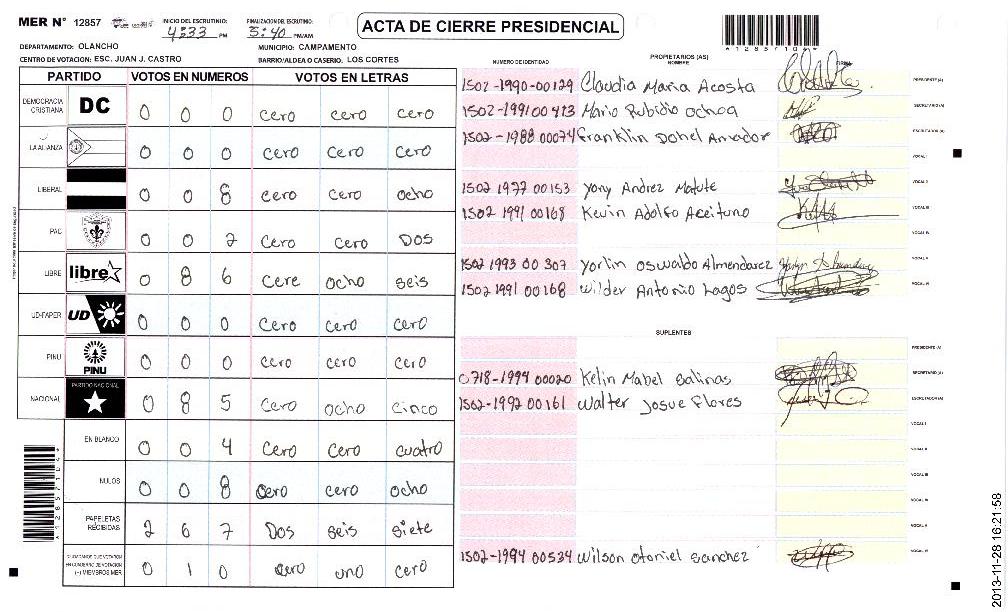 MER N° 12857
INICIO DEL ESCRUTINIO: 4:33 PM
FINALIZACION DEL ESCRUTINIO: 5:40 PM/AM
ACTA DE CIERRE PRESIDENCIAL
*12857104*
DEPARTAMENTO: OLANCHO
MUNICIPIO: CAMPAMENTO
CENTRO DE VOTACION: ESC. JUAN J. CASTRO
BARRIO/ALDEA O CASERIO: LOS CORTES
PARTIDO VOTOS EN NUMEROS VOTOS EN LETRAS
DEMOCRACIA CRISTIANA DC 0 0 0 cero cero cero
LA ALIANZA 0 0 0 cero cero cero
LIBERAL 0 0 8 cero cero ocho
PAC 0 0 2 cero cero Dos
LIBRE libre 0 8 6 cere ocho seis
UD-FAPER UD 0 0 0 cero cero cero
PINU PINU 0 0 0 cero cero cero
NACIONAL PARTIDO NACIONAL 0 8 5 cero ocho cinco
EN BLANCO 0 0 4 cero cero cuatro
NULOS 0 0 8 cero cero ocho
PAPELETAS RECIBIDAS 2 6 7 Dos seis siete
CIUDADANOS QUE VOTARON EN CUADERNO DE VOTACION (+) MIEMBROS MER 0 1 0 cero uno cero
*12857104*
PROPIETARIOS (AS)
NUMERO DE IDENTIDAD NOMBRE FIRMA
1502-1990-00129 Claudia Maria Acosta PRESIDENTE(A)
1502-1991 00 413 Mario Rubidio ochoa SECRETARIO(A)
1502-1988 00074 Franklin Donel Amador ESCRUTADOR(A)
VOCAL I
1502 1977 00153 Yony Andrez Matute VOCAL II
1502 1991 00168 Kevin Adolfo Aceituno VOCAL III
VOCAL IV
1502 1993 00 307 Yorlin oswaldo Almendarez VOCAL V
1502 1991 00168 Wilder Antonio Lagos VOCAL VI
SUPLENTES
PRESIDENTE (A)
0718-1994 00020 Kelin Mabel Salinas SECRETARIO(A)
1502-1992 00161 Walter Josue Flores ESCRUTADOR(A)
VOCAL I
VOCAL II
VOCAL III
VOCAL IV
VOCAL V
1502-1994 00534 Wilson otoniel sanchez VOCAL VI
2013-11-28 16:21:58